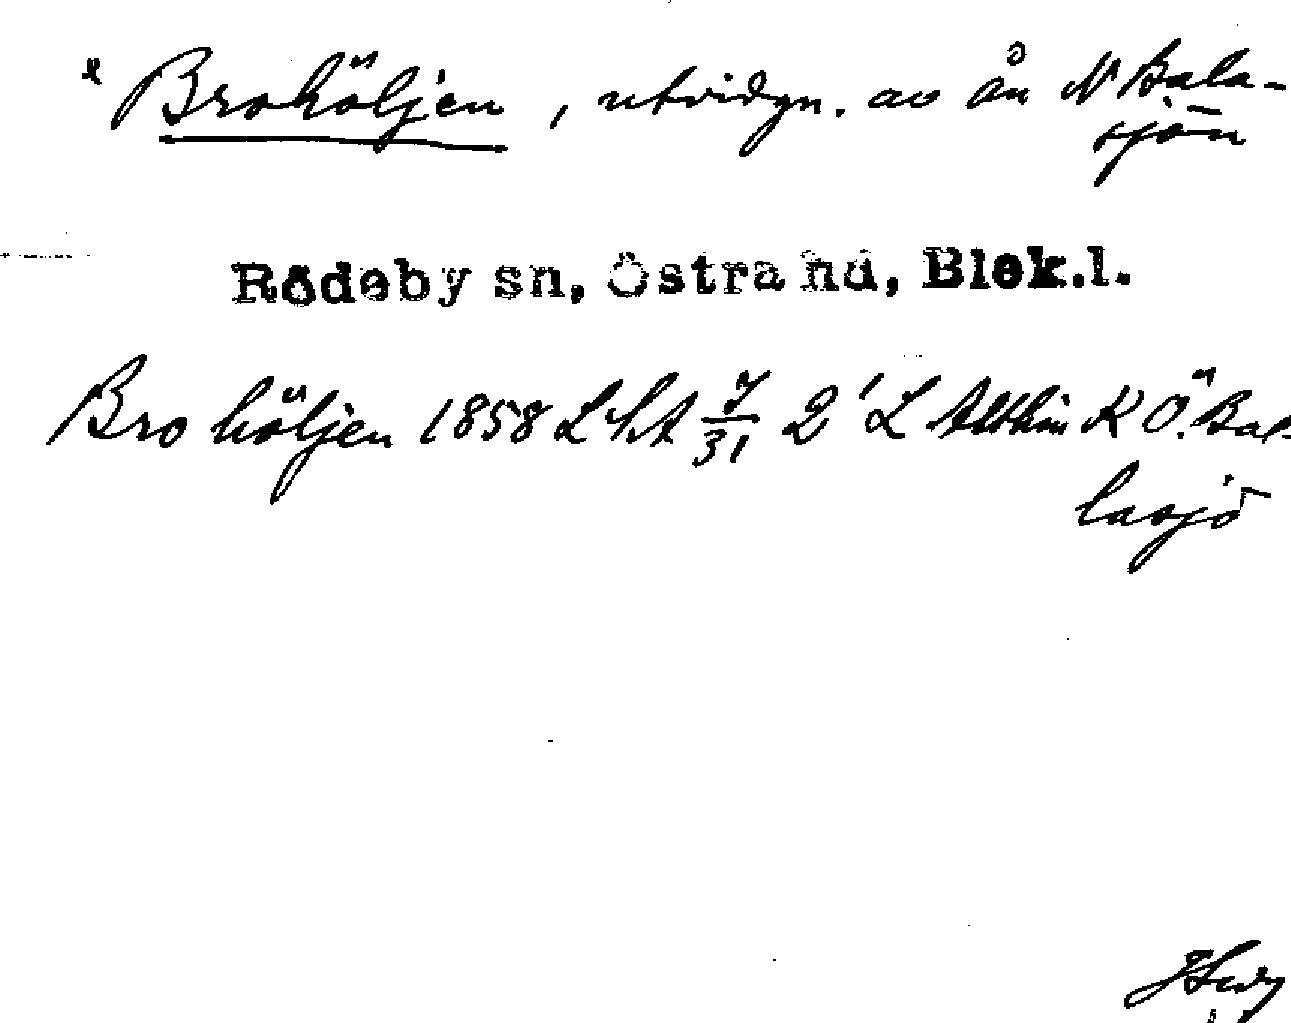 x Brohöljen, utvidgn. av ån N Bala-
sjön
Rödeby sn, Östra hd, Blek.l.
Bro höljen 1858 L ht 7/31 2' L K Ö. Bal-
lasjö